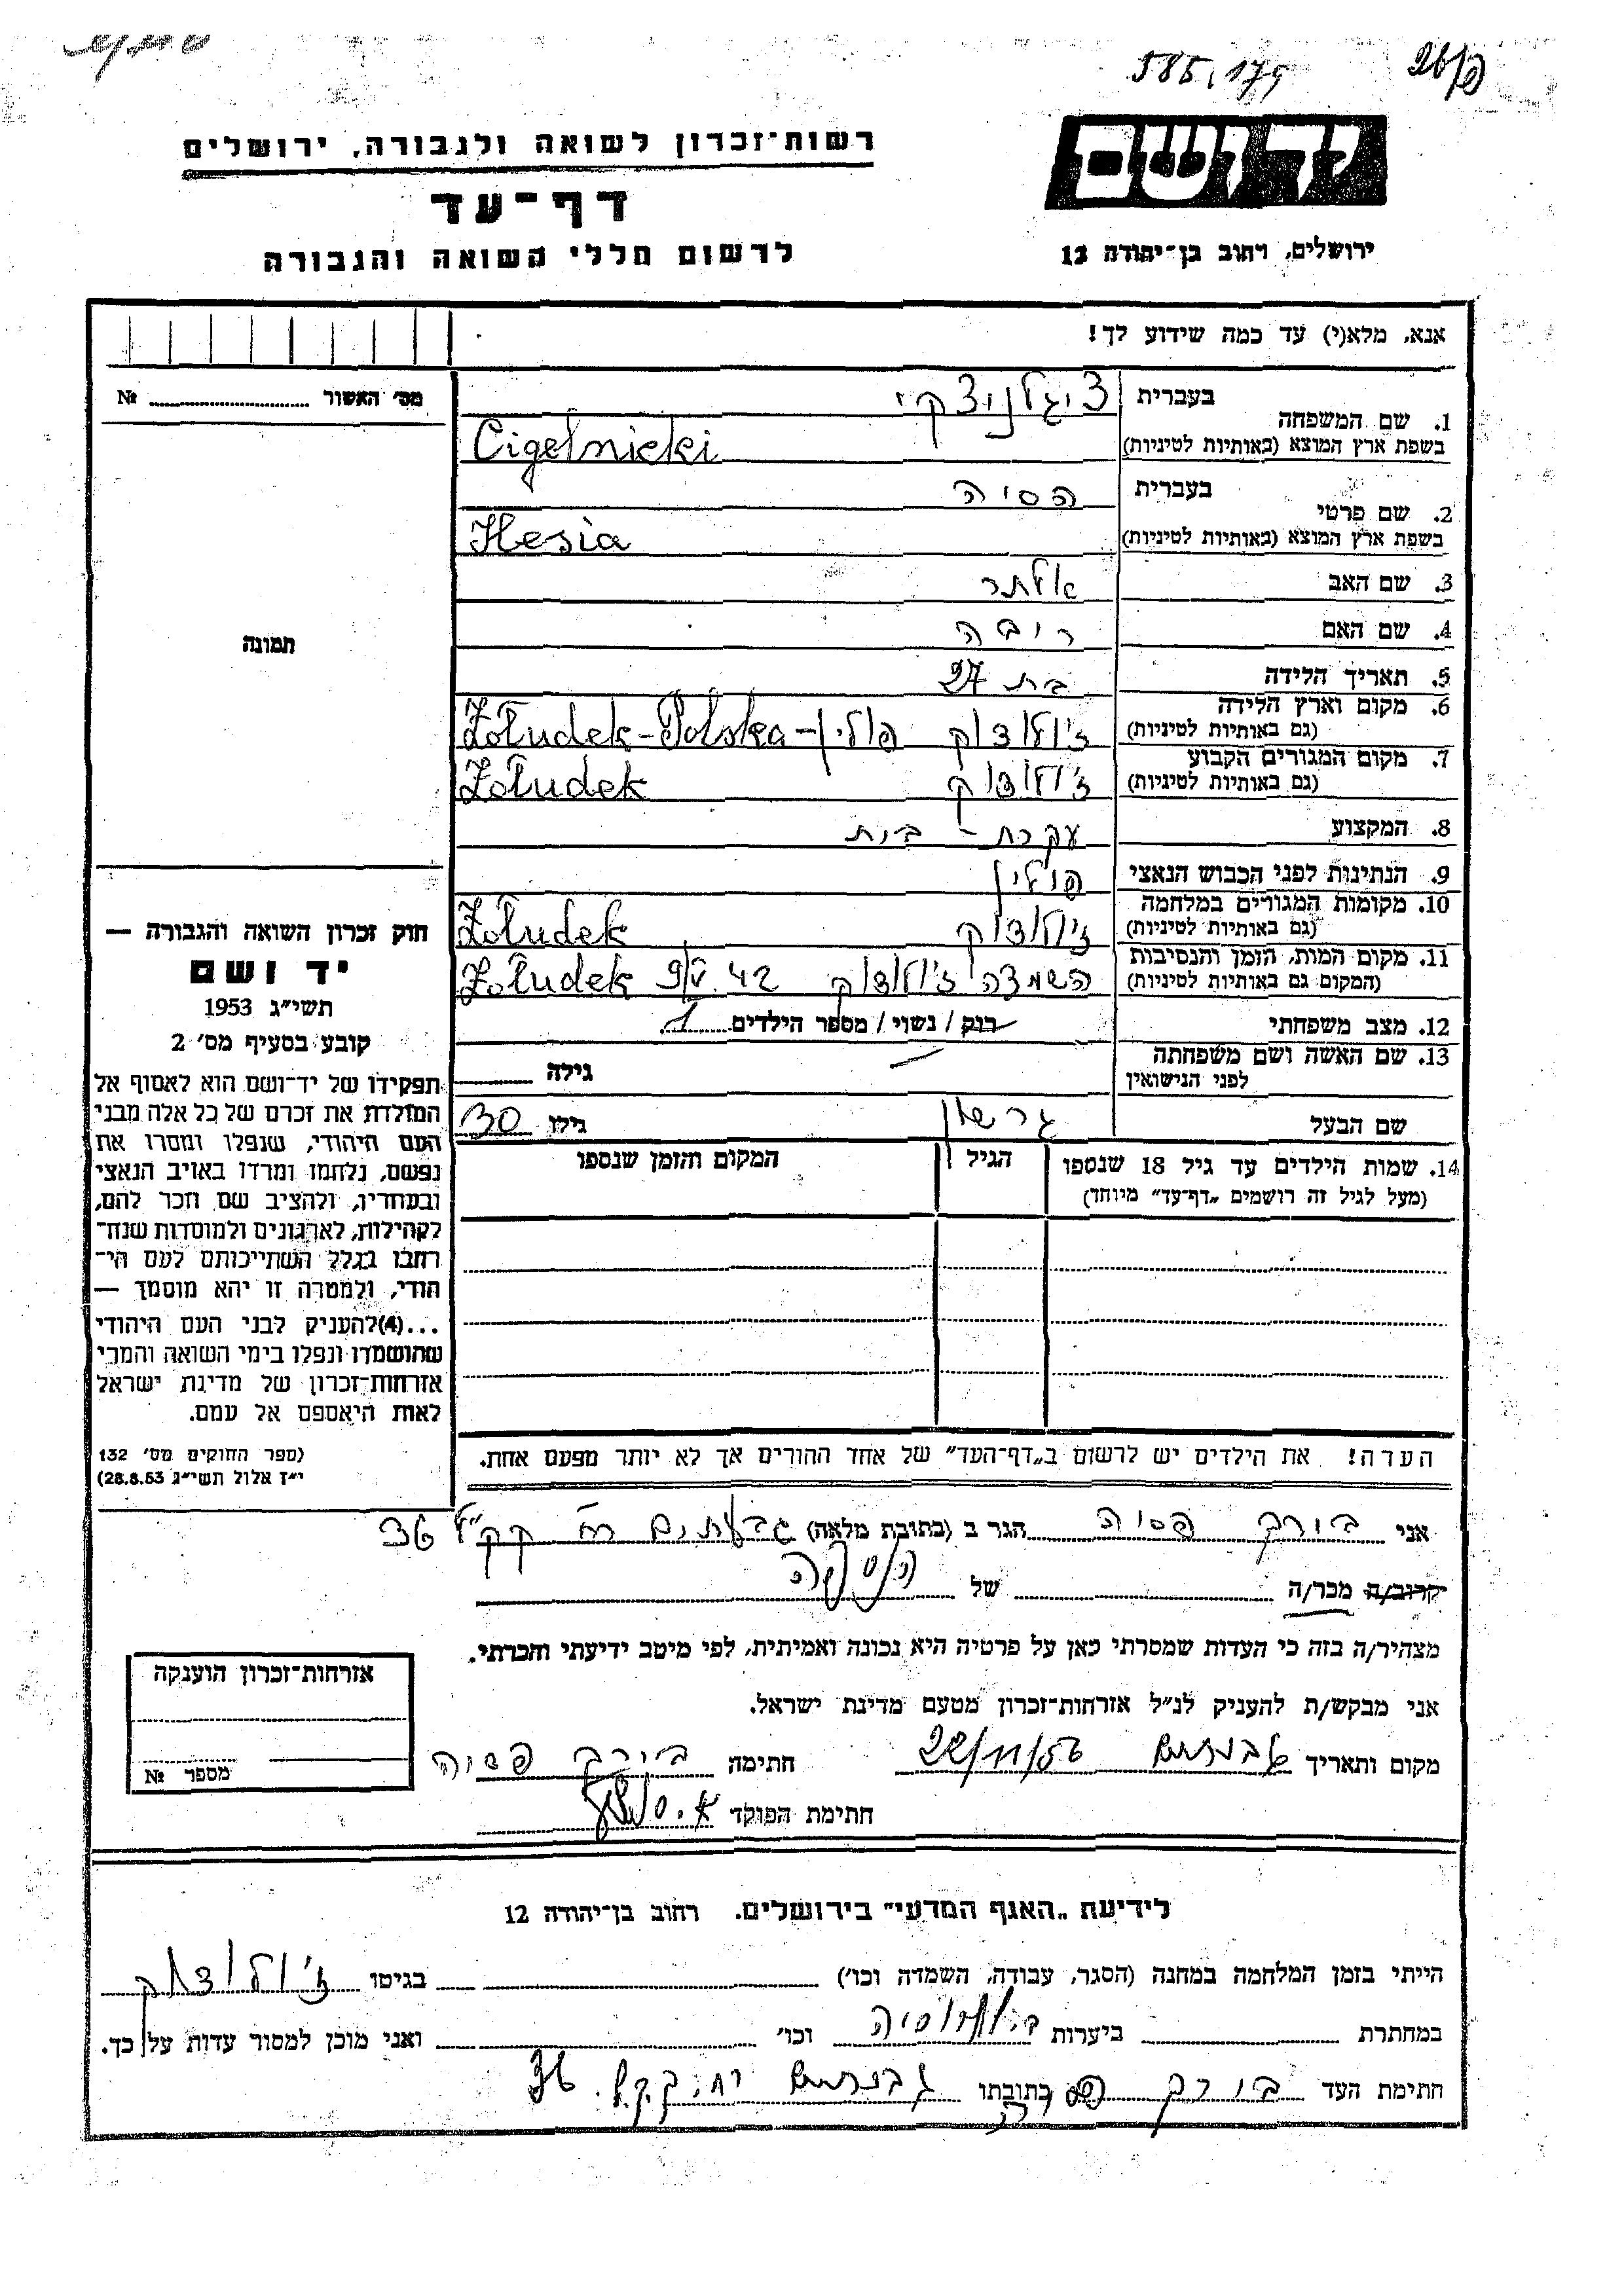 585,179
רשות־זכרון לשואה ולגבורה, ירושלים
יד ושם
דף־עד
לרשום חללי השואה והגבורה
ירושלים, רחוב בן־יהודה 12
אנא, מלא(י) עד כמה שידוע לך!
מס׳ האשור № 
1. שם המשפחה
בעברית ציגלניצקי
בשפת ארץ המוצא (באותיות לטיניות) Cigełnicki
2. שם פרטי
בעברית הסיה
בשפת ארץ המוצא (באותיות לטיניות) Hesia
3. שם האב אלתר
4. שם האם ריבה
5. תאריך הלידה בת 27
6. מקום וארץ הלידה
(גם באותיות לטיניות) ז'ולודוק פולין - Żołudek-Polska
7. מקום המגורים הקבוע
(גם באותיות לטיניות) ז'ולודוק Żołudek
8. המקצוע עקרת - בית
9. הנתינות לפני הכבוש הנאצי פולין
10. מקומות המגורים במלחמה
(גם באותיות לטיניות) ז'ולודוק Żołudek
11. מקום המות, הזמן והנסיבות
(המקום גם באותיות לטיניות) השמדה ז'ולודוק 9/V.42 Żołudek
12. מצב משפחתי רוק / נשוי / מספר הילדים 1
13. שם האשה ושם משפחתה
לפני הנישואין — גילה
שם הבעל גרשון גילו 30
14. שמות הילדים עד גיל 18 שנספו הגיל המקום והזמן שנספו
(מעל לגיל זה רושמים „דף־עד״ מיוחד)
הערה! את הילדים יש לרשום ב„דף־העד״ של אחד ההורים אך לא יותר מפעם אחת.
תמונה
חוק זכרון השואה והגבורה —
יד ושם
תשי״ג 1953
קובע בסעיף מס׳ 2
תפקידו של יד־ושם הוא לאסוף אל
המולדת את זכרם של כל אלה מבני
העם היהודי, שנפלו ומסרו את
נפשם, נלחמו ומרדו באויב הנאצי
ובעוזריו, ולהציב שם וזכר להם,
לקהילות, לארגונים ולמוסדות שנח־
רבו בגלל השתייכותם לעם הי־
הודי, ולמטרה זו יהא מוסמך —
...(4)להעניק לבני העם היהודי
שהושמדו ונפלו בימי השואה והמרי
אזרחות־זכרון של מדינת ישראל
לאות היאספם אל עמם.
(ספר החוקים מס׳ 132
י״ז אלול תשי״ג 28.8.53)
אני בורק פסיה הגר ב (כתובת מלאה) גבעתים רח' קק"ל 36
קרוב/ה מכר/ה של
מצהיר/ה בזה כי העדות שמסרתי כאן על פרטיה היא נכונה ואמיתית, לפי מיטב ידיעתי והכרתי.
אני מבקש/ת להעניק לנ״ל אזרחות־זכרון מטעם מדינת ישראל.
מקום ותאריך גבעתים 22/11/56 חתימה בורק פסיה
חתימת הפוקד
אזרחות־זכרון הוענקה
מספר №
לידיעת „האגף המדעי״ בירושלים. רחוב בן־יהודה 12
הייתי בזמן המלחמה במחנה (הסגר, עבודה, השמדה וכו׳) בגיטו ז'ולודוק
במחתרת ביערות וכו׳ ואני מוכן למסור עדות על כך.
חתימת העד בורק פסיה כתובתו גבעתים רח. ק.ק.ל. 36